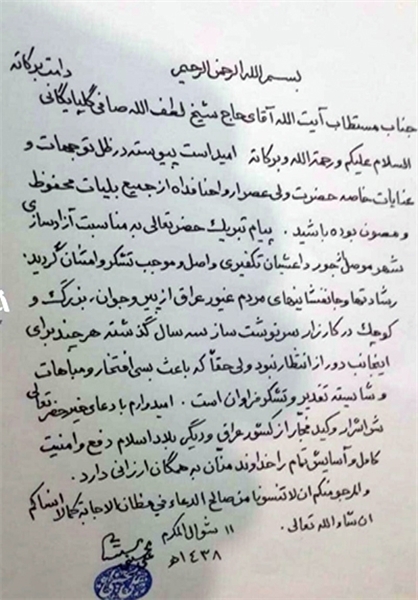 بسم الله الرحمن الرحیم
جناب مستطاب آیت الله آقای حاج شیخ لطف الله صافی گلپایگانی دامت برکاته
السلام علیکم ورحمة الله وبرکاته امید است پیوسته در ظل توجهات و
عنایات خاصه حضرت ولی عصر ارواحنا فداه از جمیع بلیات محفوظ
و مصون بوده باشید. پیام تبریک حضرتعالی به مناسبت آزادسازی
شهر موصل از جور داعشیان تکفیری واصل و موجب تشکر و امتنان گردید؛
رشادتها وجانفشانیهای مردم غیور عراق از پیر وجوان، بزرگ و
کوچک در کارزار سرنوشت ساز سه سال گذشته هرچند برای
اینجانب دور از انتظار نبود ولی حقاً که باعث بسی افتخار و مباهات
و شایسته تقدیر و تشکر فراوان است. امیدوارم با دعای خیر حضرتعالی
شر اشرار و کید فجّار از کشور عراق و دیگر بلاد اسلام دفع و امنیت
کامل و آسایش تمام را خداوند منّان به همگان ارزانی دارد.
والمرجو منکم ان لا تنسونا من صالح الدعاء فی مظان الاجابة کما لا انساکم
ان شاء الله تعالی.
۱۱ شوال المکرم
۱۴۳۸هـ